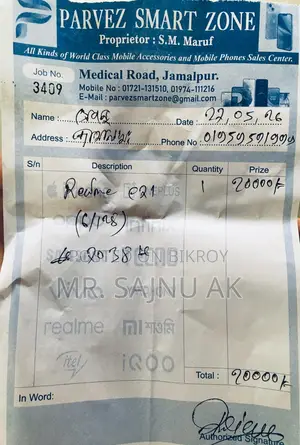 PARVEZ SMART ZONE
Proprietor : S.M. Maruf
All Kinds of World Class Mobile Accessories and Mobile Phones Sales Center.
Job No. 3409
Medical Road, Jamalpur.
Mobile No : 01721-131510, 01974-111216
E-Mail : parvezsmartzone@gmail.com
Name : Date : 22,05,26
Address : Phone :
S/n Description Quantity Prize
Realme 1 20000/-
(6/128)
BIKROY
MR. SAJNU AK
realme mi শাওমি
iQOO
Total : 20000/-
In Word:
Authorized Signature